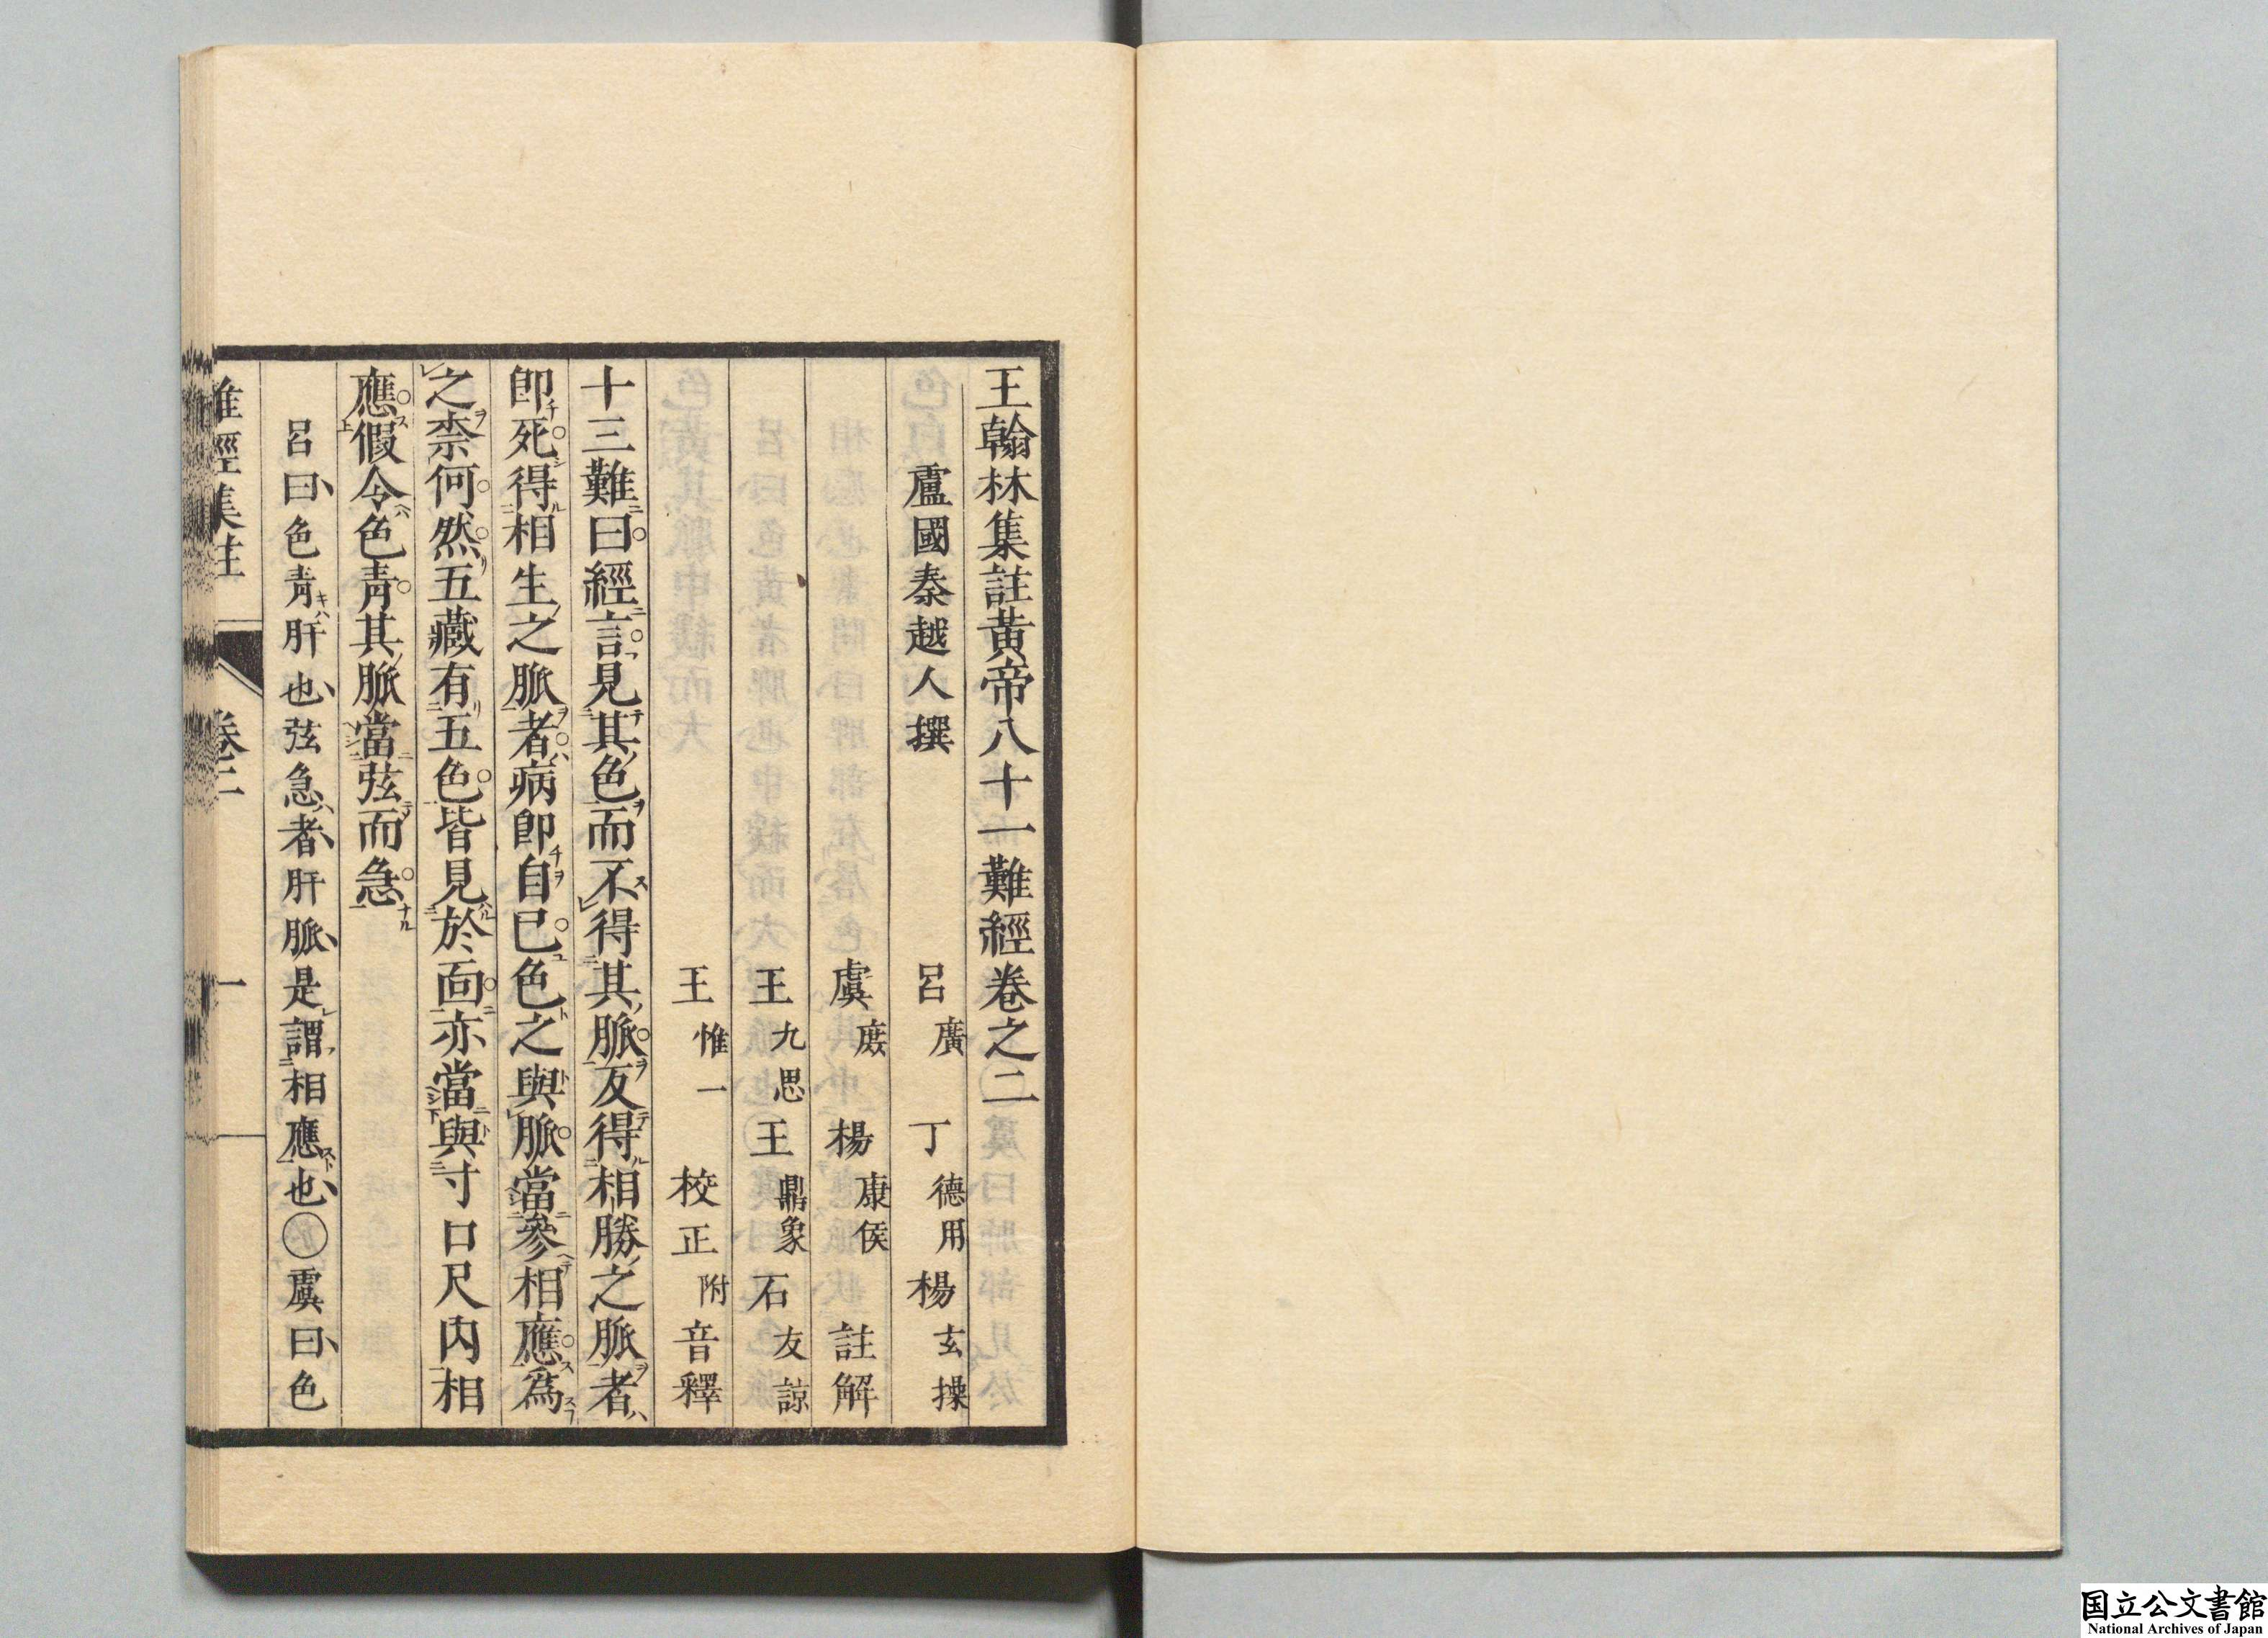 王翰林集註黃帝八十一難經卷之二
盧國秦越人撰
呂廣　丁德用　楊玄操
虞庶　楊康侯　註解
王九思　王鼎象　石友諒
王惟一　校正附音釋
十三難曰經言見其色而不得其脈反得相勝之脈者
卽死得相生之脈者病卽自已色之與脈當參相應爲
之柰何然五藏有五色皆見於面亦當與寸口尺內相
應假令色靑其脈當弦而急
呂曰色靑肝也弦急者肝脈是謂相應也○虞曰色
難經集註　卷二　一
国立公文書館
National Archives of Japan